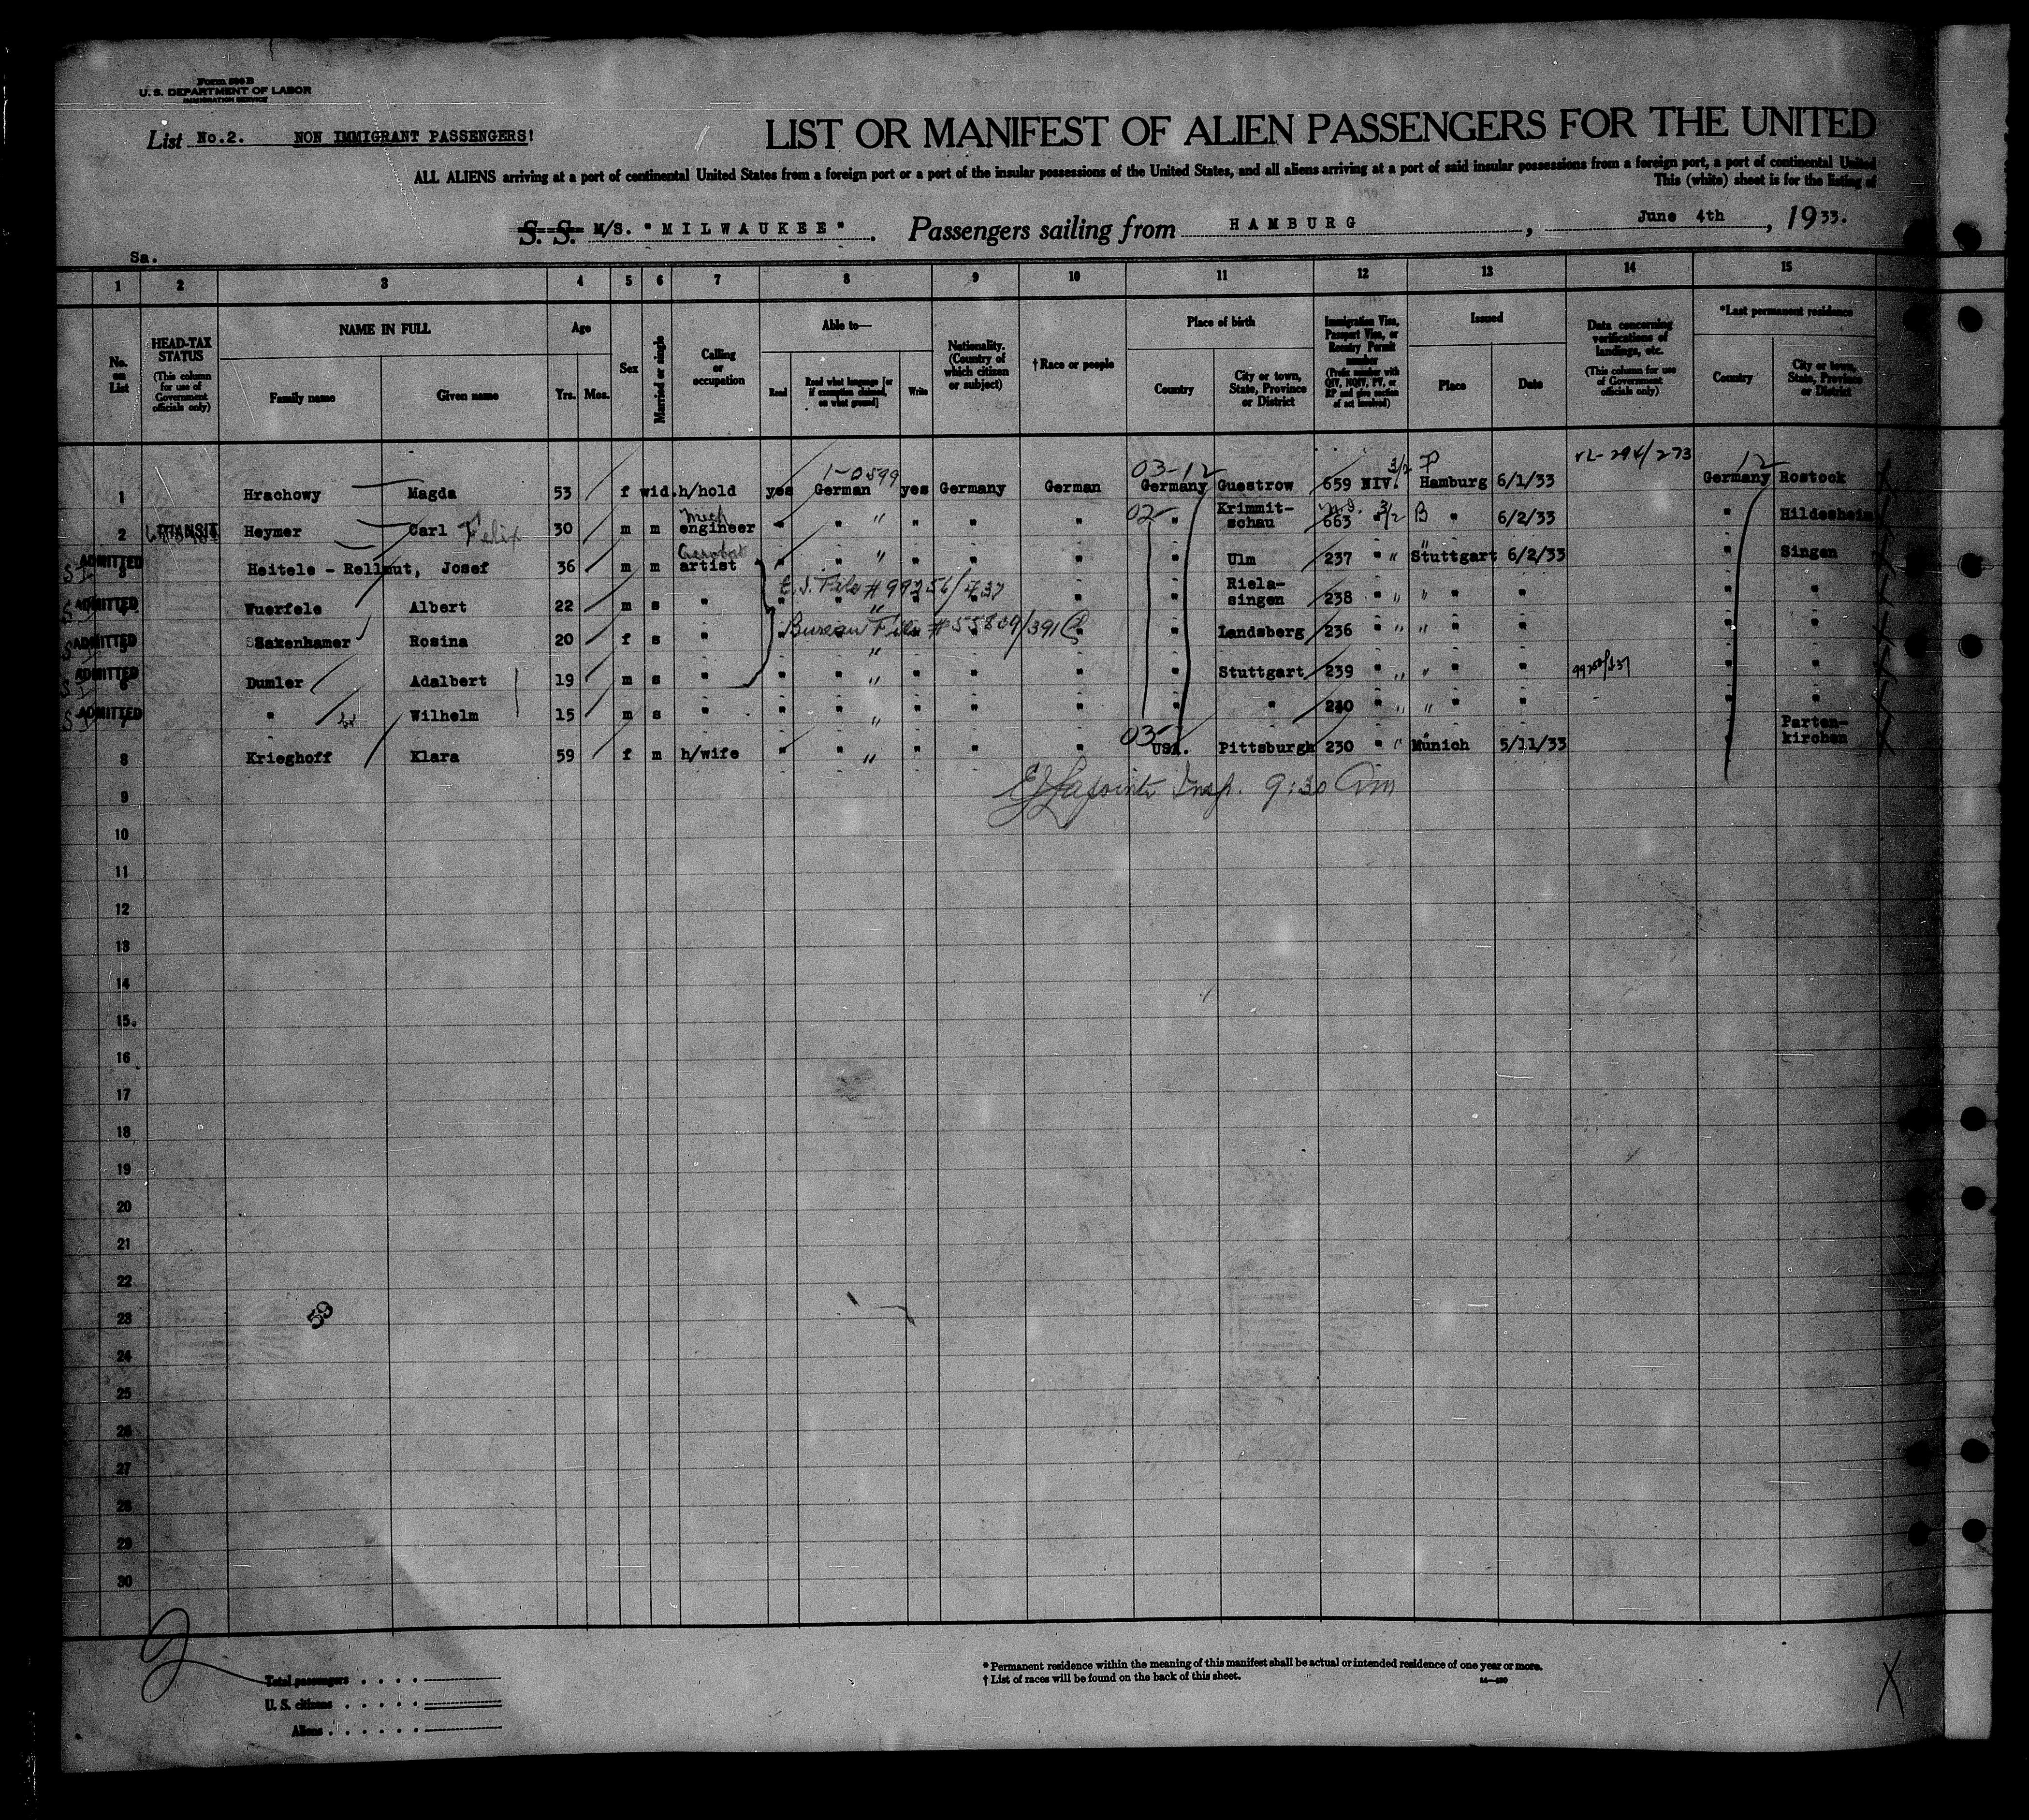 Form 500 B
U. S. DEPARTMENT OF LABOR
IMMIGRATION SERVICE
List No.2. NON IMMIGRANT PASSENGERS!
LIST OR MANIFEST OF ALIEN PASSENGERS FOR THE UNITED
ALL ALIENS arriving at a port of continental United States from a foreign port or a port of the insular possessions of the United States, and all aliens arriving at a port of said insular possessions from a foreign port, a port of continental United
This (white) sheet is for the listing of
S. S. M/S. "MILWAUKEE". Passengers sailing from HAMBURG, June 4th, 1933.
Sa.
1 2 3 4 5 6 7 8 9 10 11 12 13 14 15
No. on List
HEAD-TAX STATUS
(This column for use of Government officials only)
NAME IN FULL
Family name Given name
Age
Yrs. Mos.
Sex
Married or single
Calling or occupation
Able to—
Read
Read what language [or if exemption claimed, on what ground]
Write
Nationality. (Country of which citizen or subject)
† Race or people
Place of birth
Country
City or town, State, Province or District
Immigration Visa, Passport Visa, or Reentry Permit number
(Prefix number with QIV, NQIV, PV, or RP and give section of act involved)
Issued
Place Date
Data concerning verifications of landings, etc.
(This column for use of Government officials only)
*Last permanent residence
Country
City or town, State, Province or District
1-0599 03-12 3/2 P 12
1 Hrachowy Magda 53 f wid. h/hold yes German yes Germany German Germany Guestrow 659 NIV. Hamburg 6/1/33 Germany Rostock
2 TRANSIT Heymer Carl Felix 30 m m Mech engineer " " " " " 02 " Krimmit-schau 663 " 3/2 B " 6/2/33 " Hildesheim
ADMITTED 3 Heitele - Rellmut, Josef 36 m m Acrobat artist " " " " " " Ulm 237 " " Stuttgart 6/2/33 " Singen
E.I. File #99256/437
ADMITTED 4 Wuerfele Albert 22 m s " " " " " " " Riela-singen 238 " " " " " " "
Bureau File #55809/391
ADMITTED 5 Saxenhamer Rosina 20 f s " " " " " " " Landsberg 236 " " " " " " "
ADMITTED 6 Dumler Adalbert 19 m s " " " " " " " Stuttgart 239 " " " " " " "
ADMITTED 7 " Wilhelm 15 m s " " " " " " " " 240 " " " " " " "
8 Krieghoff Klara 59 f m h/wife " " " " " 03 USA. Pittsburgh 230 " " Munich 5/11/33 " Parten-kirchen
Insp. 9:30 am
9
10
11
12
13
14
15
16
17
18
19
20
21
22
23
24
25
26
27
28
29
30
59
Total passengers
U. S. citizens
Aliens
* Permanent residence within the meaning of this manifest shall be actual or intended residence of one year or more.
† List of races will be found on the back of this sheet.
14—430